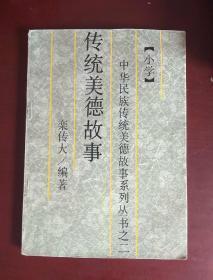 【小学】
中华民族传统美德故事系列丛书之二
传统美德故事
栾传大/编著